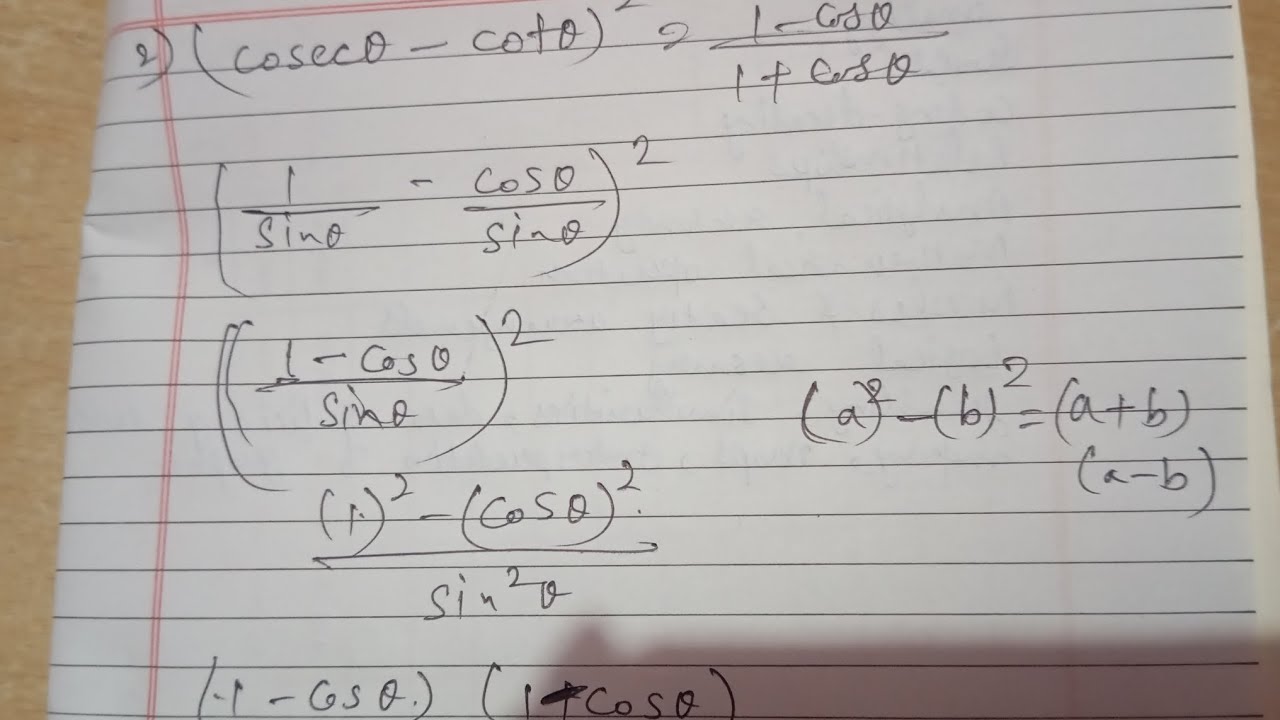 2) (cosecθ - cotθ)² = 1 - cosθ / 1 + cosθ
(1 / sinθ - cosθ / sinθ)²
(1 - cosθ / sinθ)²
(a)² - (b)² = (a+b)
(a-b)
(1)² - (cosθ)² / sin²θ
(1 - cosθ) (1+cosθ)